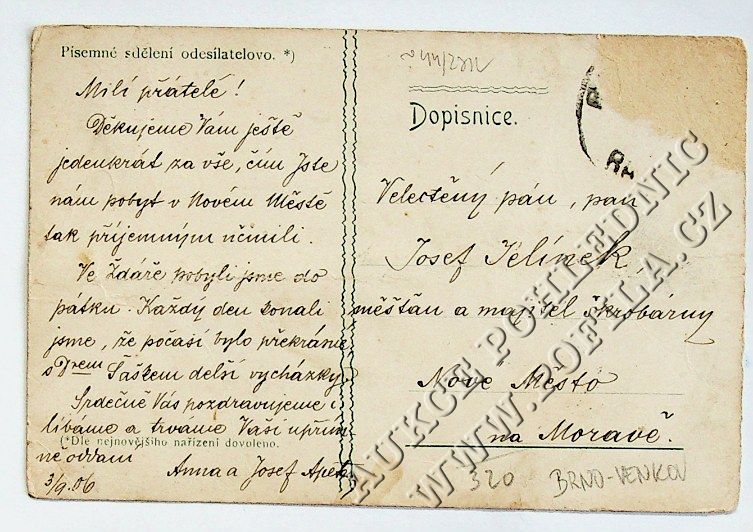 Písemné sdělení odesílatelovo. *)
Milí přátelé!
Děkujeme Vám ještě
jedenkrát za vše, čím Jste
nám pobyt v Novém Městě
tak příjemným učinili.
Ve Ždáře pobyli jsme do
pátku. Každý den konali
jsme, že počasí bylo překrásné
s Drem Šaškem delší vycházky.
Srdečně Vás pozdravujeme i
líbáme a trváme Vaši upřím
ně oddaní
(*Dle nejnovějšího nařízení dovoleno.
Anna a Josef
3/9.06
Dopisnice.
Velectěný pán, pan
Josef Jelínek,
měšťan a majitel škrobárny
Nové Město
na Moravě.
320 BRNO-VENKOV
AUKCE POHLEDNIC
WWW.POFILA.CZ